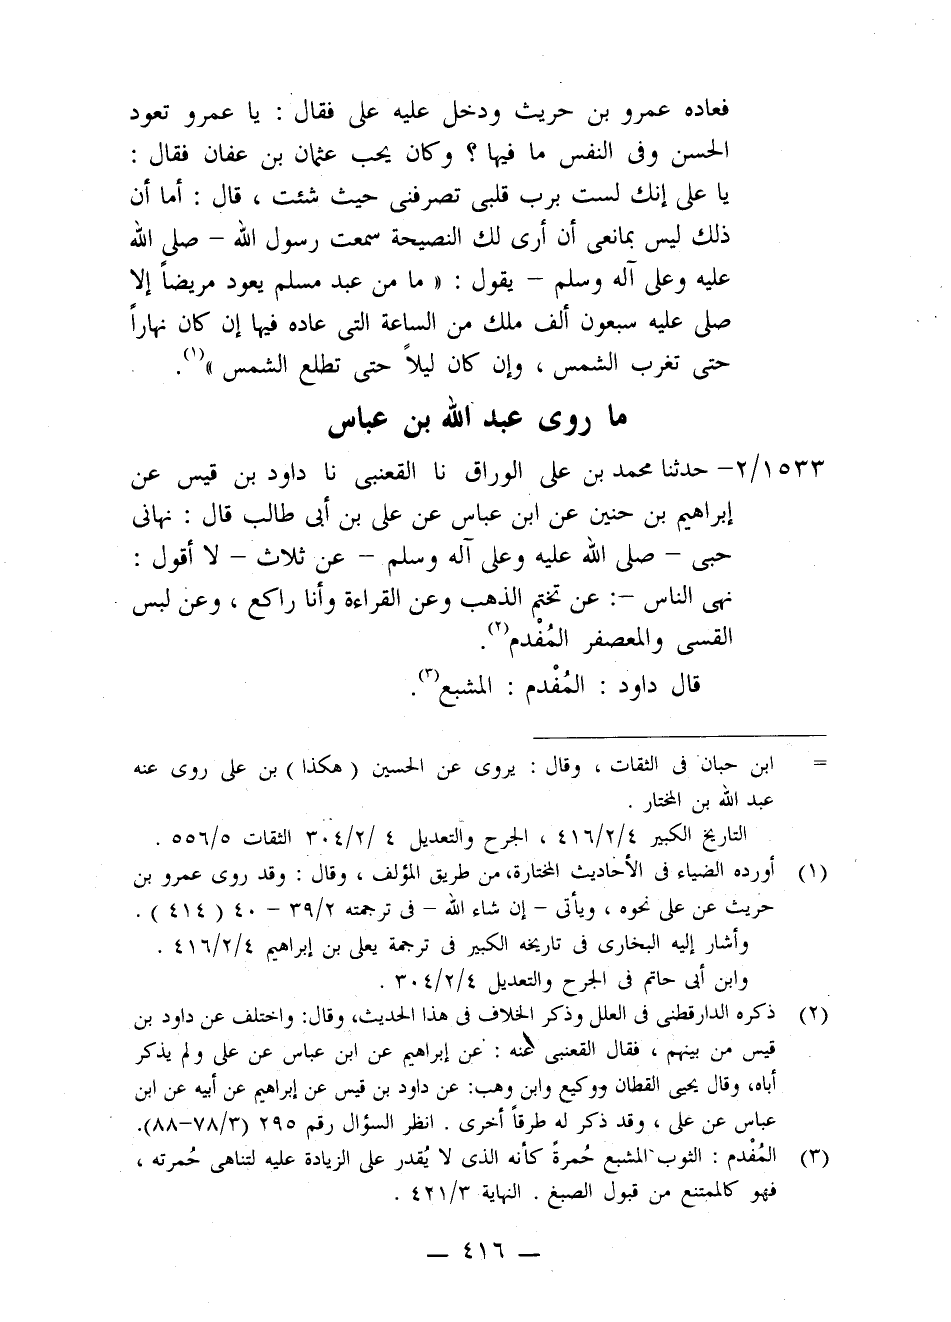 فعاده عمرو بن حريث ودخل عليه على فقال : يا عمرو تعود
الحسن وفى النفس ما فيها ؟ وكان يحب عثمان بن عفان فقال :
يا على إنك لست برب قلبى تصرفنى حيث شئت ، قال : أما أن
ذلك ليس بمانعى أن أرى لك النصيحة سمعت رسول الله – صلى الله
عليه وعلى آله وسلم – يقول : « ما من عبد مسلم يعود مريضاً إلا
صلى عليه سبعون ألف ملك من الساعة التى عاده فيها إن كان نهاراً
حتى تغرب الشمس ، وإن كان ليلاً حتى تطلع الشمس »(١).
ما روى عبد الله بن عباس
٢/١٥٣٣– حدثنا محمد بن على الوراق نا القعنبى نا داود بن قيس عن
إبراهيم بن حنين عن ابن عباس عن على بن أبى طالب قال : نهانى
حبى – صلى الله عليه وعلى آله وسلم – عن ثلاث – لا أقول :
نهى الناس –: عن تختم الذهب وعن القراءة وأنا راكع ، وعن لبس
القسى والمعصفر المُفْدم(٢).
قال داود : المُفْدم : المشبع(٣).
= ابن حبان فى الثقات ، وقال : يروى عن الحسين ( هكذا ) بن على روى عنه
عبد الله بن المختار .
التاريخ الكبير ٤١٦/٢/٤ ، الجرح والتعديل ٣٠٤/٢/ ٤ الثقات ٥٥٦/٥ .
(١) أورده الضياء فى الأحاديث المختارة، من طريق المؤلف ، وقال : وقد روى عمرو بن
حريث عن على نحوه ، ويأتى – إن شاء الله – فى ترجمته ٣٩/٢ – ٤٠ ( ٤١٤ ) .
وأشار إليه البخارى فى تاريخه الكبير فى ترجمة يعلى بن إبراهيم ٤١٦/٢/٤ .
وابن أبى حاتم فى الجرح والتعديل ٣٠٤/٢/٤ .
(٢) ذكره الدارقطنى فى العلل وذكر الخلاف فى هذا الحديث، وقال: واختلف عن داود بن
قيس من بينهم ، فقال القعنبى عنه : عن إبراهيم عن ابن عباس عن على ولم يذكر
أباه، وقال يحيى القطان ووكيع وابن وهب: عن داود بن قيس عن إبراهيم عن أبيه عن ابن
عباس عن على ، وقد ذكر له طرقاً أخرى . انظر السؤال رقم ٢٩٥ (٧٨/٣–٨٨).
(٣) المُفْدم : الثوب المشبع حُمرةً كأنه الذى لا يُقدر على الزيادة عليه لتناهى حُمرته ،
فهو كالممتنع من قبول الصبغ . النهاية ٤٢١/٣ .
— ٤١٦ —